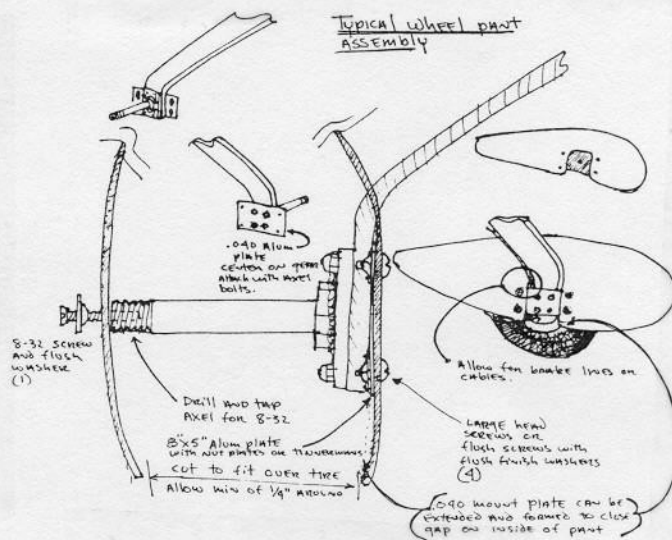 TYPICAL WHEEL PANT
ASSEMBLY
.040 ALUM
PLATE
CENTER ON GEAR
ATTACH WITH AXEL
BOLTS.
8-32 SCREW
AND FLUSH
WASHER
(1)
DRILL AND TAP
AXEL FOR 8-32
8"x5" ALUM PLATE
WITH NUT PLATES OR TINNERMANS
CUT TO FIT OVER TIRE
ALLOW MIN OF 1/4" AROUND
ALLOW FOR BRAKE LINES OR
CABLES.
LARGE HEAD
SCREWS OR
FLUSH SCREWS WITH
FLUSH FINISH WASHERS
(4)
.040 MOUNT PLATE CAN BE
EXTENDED AND FORMED TO CLOSE
GAP ON INSIDE OF PANT